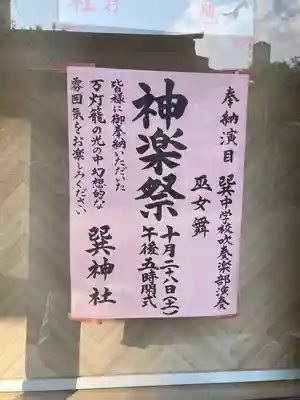 奉納演目 巽中学校吹奏楽部演奏
巫女舞
神楽祭 十月二十八日(土)
午後五時開式
皆様に御奉納いただいた
万灯籠の光の中幻想的な
雰囲気をお楽しみください
巽神社